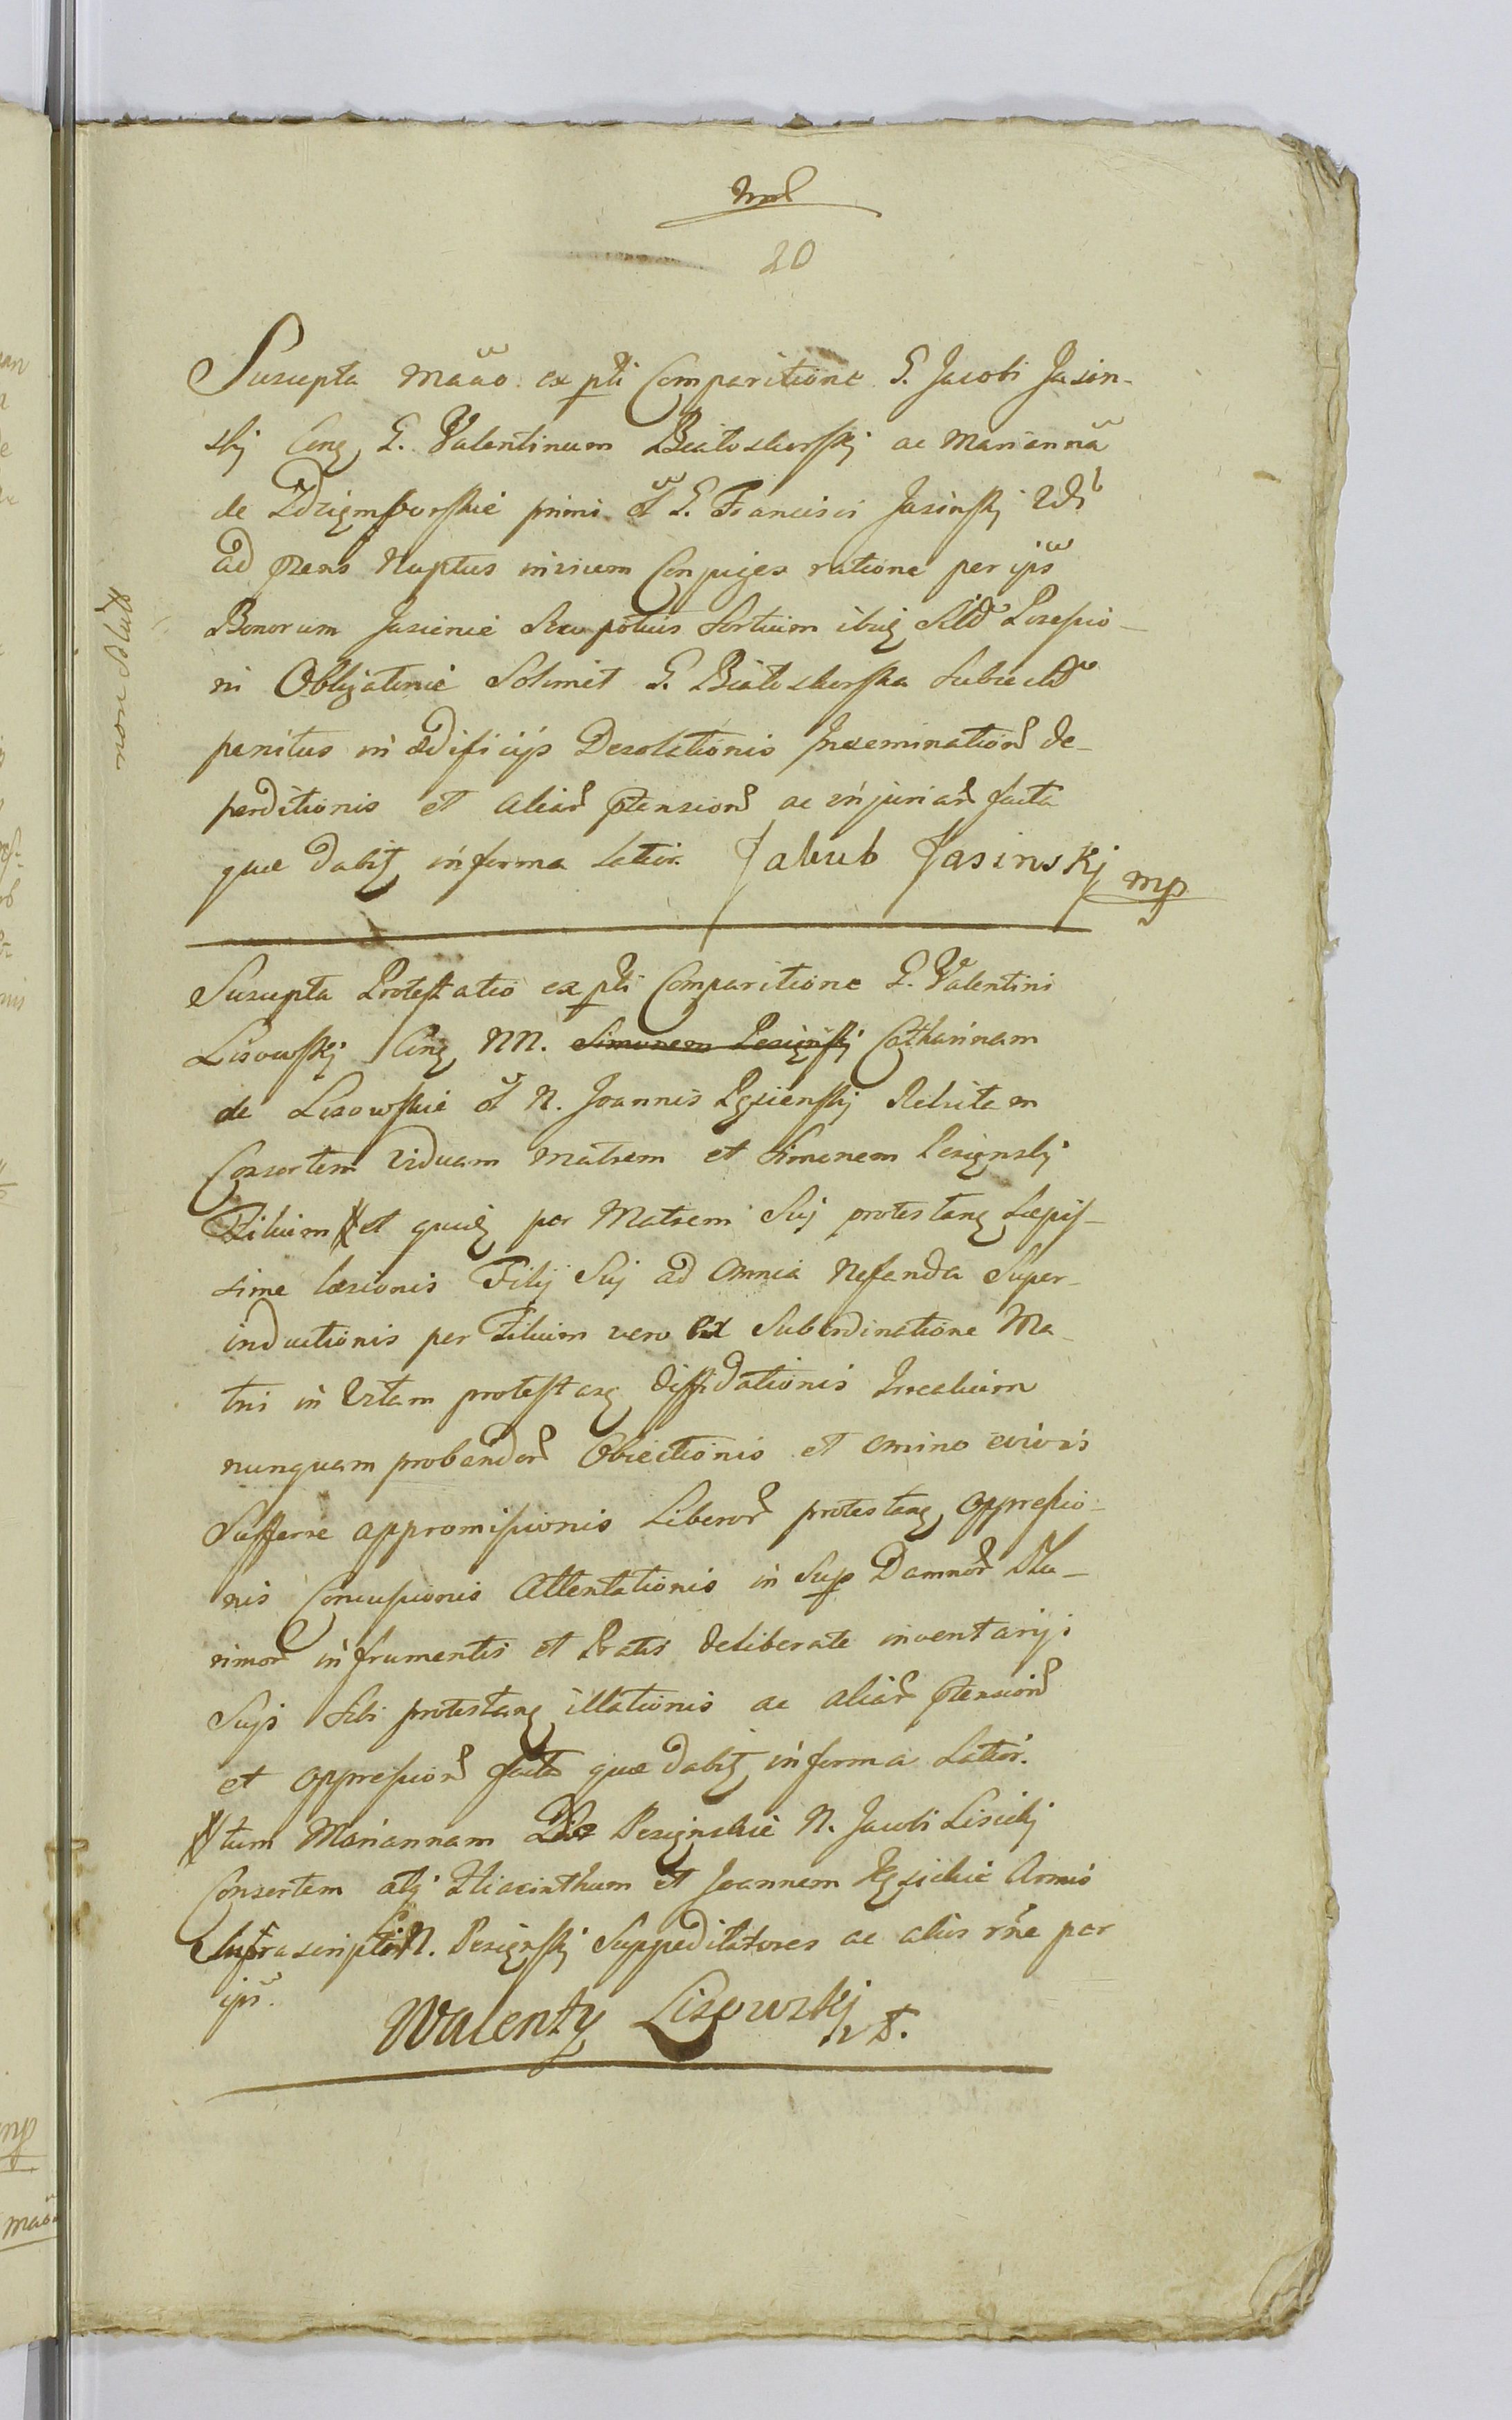 20
Suscepta Maãao ex pti Comparitione G. Jacobi Jasin-
skj Conq G. Valentinum Białoskorskj ac Mariannã
de primi õl G. Francisci Jasinskj 2di
ad pzens Nuptus invicem Conjuges ratione per ips
Bonorum Jasienie Seu potius Sortium ibiq Possessio-
ni Obligatorie Solimet G. Białoskorska Subiectã
penitus in ædificijs Desolationis Insemination de-
perditionis et aliar ptension ac injuriar facta
quæ dabit in forma latior. Jakub Jasinskj mp
Suscepta Protestatio ex pti Comparitione G. Valentini
Lisowskj Conq NN. Simonem Pesignskj Catharinam
de Lisowskie õl N. Joannis Relictam
Consortem Viduam Matrem et Simonem Pesignskj
Filium et quidē per Matrem Sui protestanē Sæpis-
sime læsionis Filij Sui ad Omnia Nefanda Super-
inductionis per Filium vero ex Subordinatione Ma-
tris in Vitam protestanē diffidationis Irrealium
nunquam probandor Obiectionis et omino
Sufferre appromissionis Liberor protestanē oppressio-
nis Concussionis Attentationis in Sup Damnor Plu-
rimor in frumentis et Pratis deliberate inventarij
Sup Sibi protestanē illationis ac aliar ptension
et oppression facta quæ dabit in forma latior.
tum Mariannam De Pesignskie N. Jacobi Lisickj
Consortem atq Hiacinthum et Joannem Armis
Infrascripti N. Pesignskj Suppeditatores ac alios rne per
ips.
Walenty Lisowskj